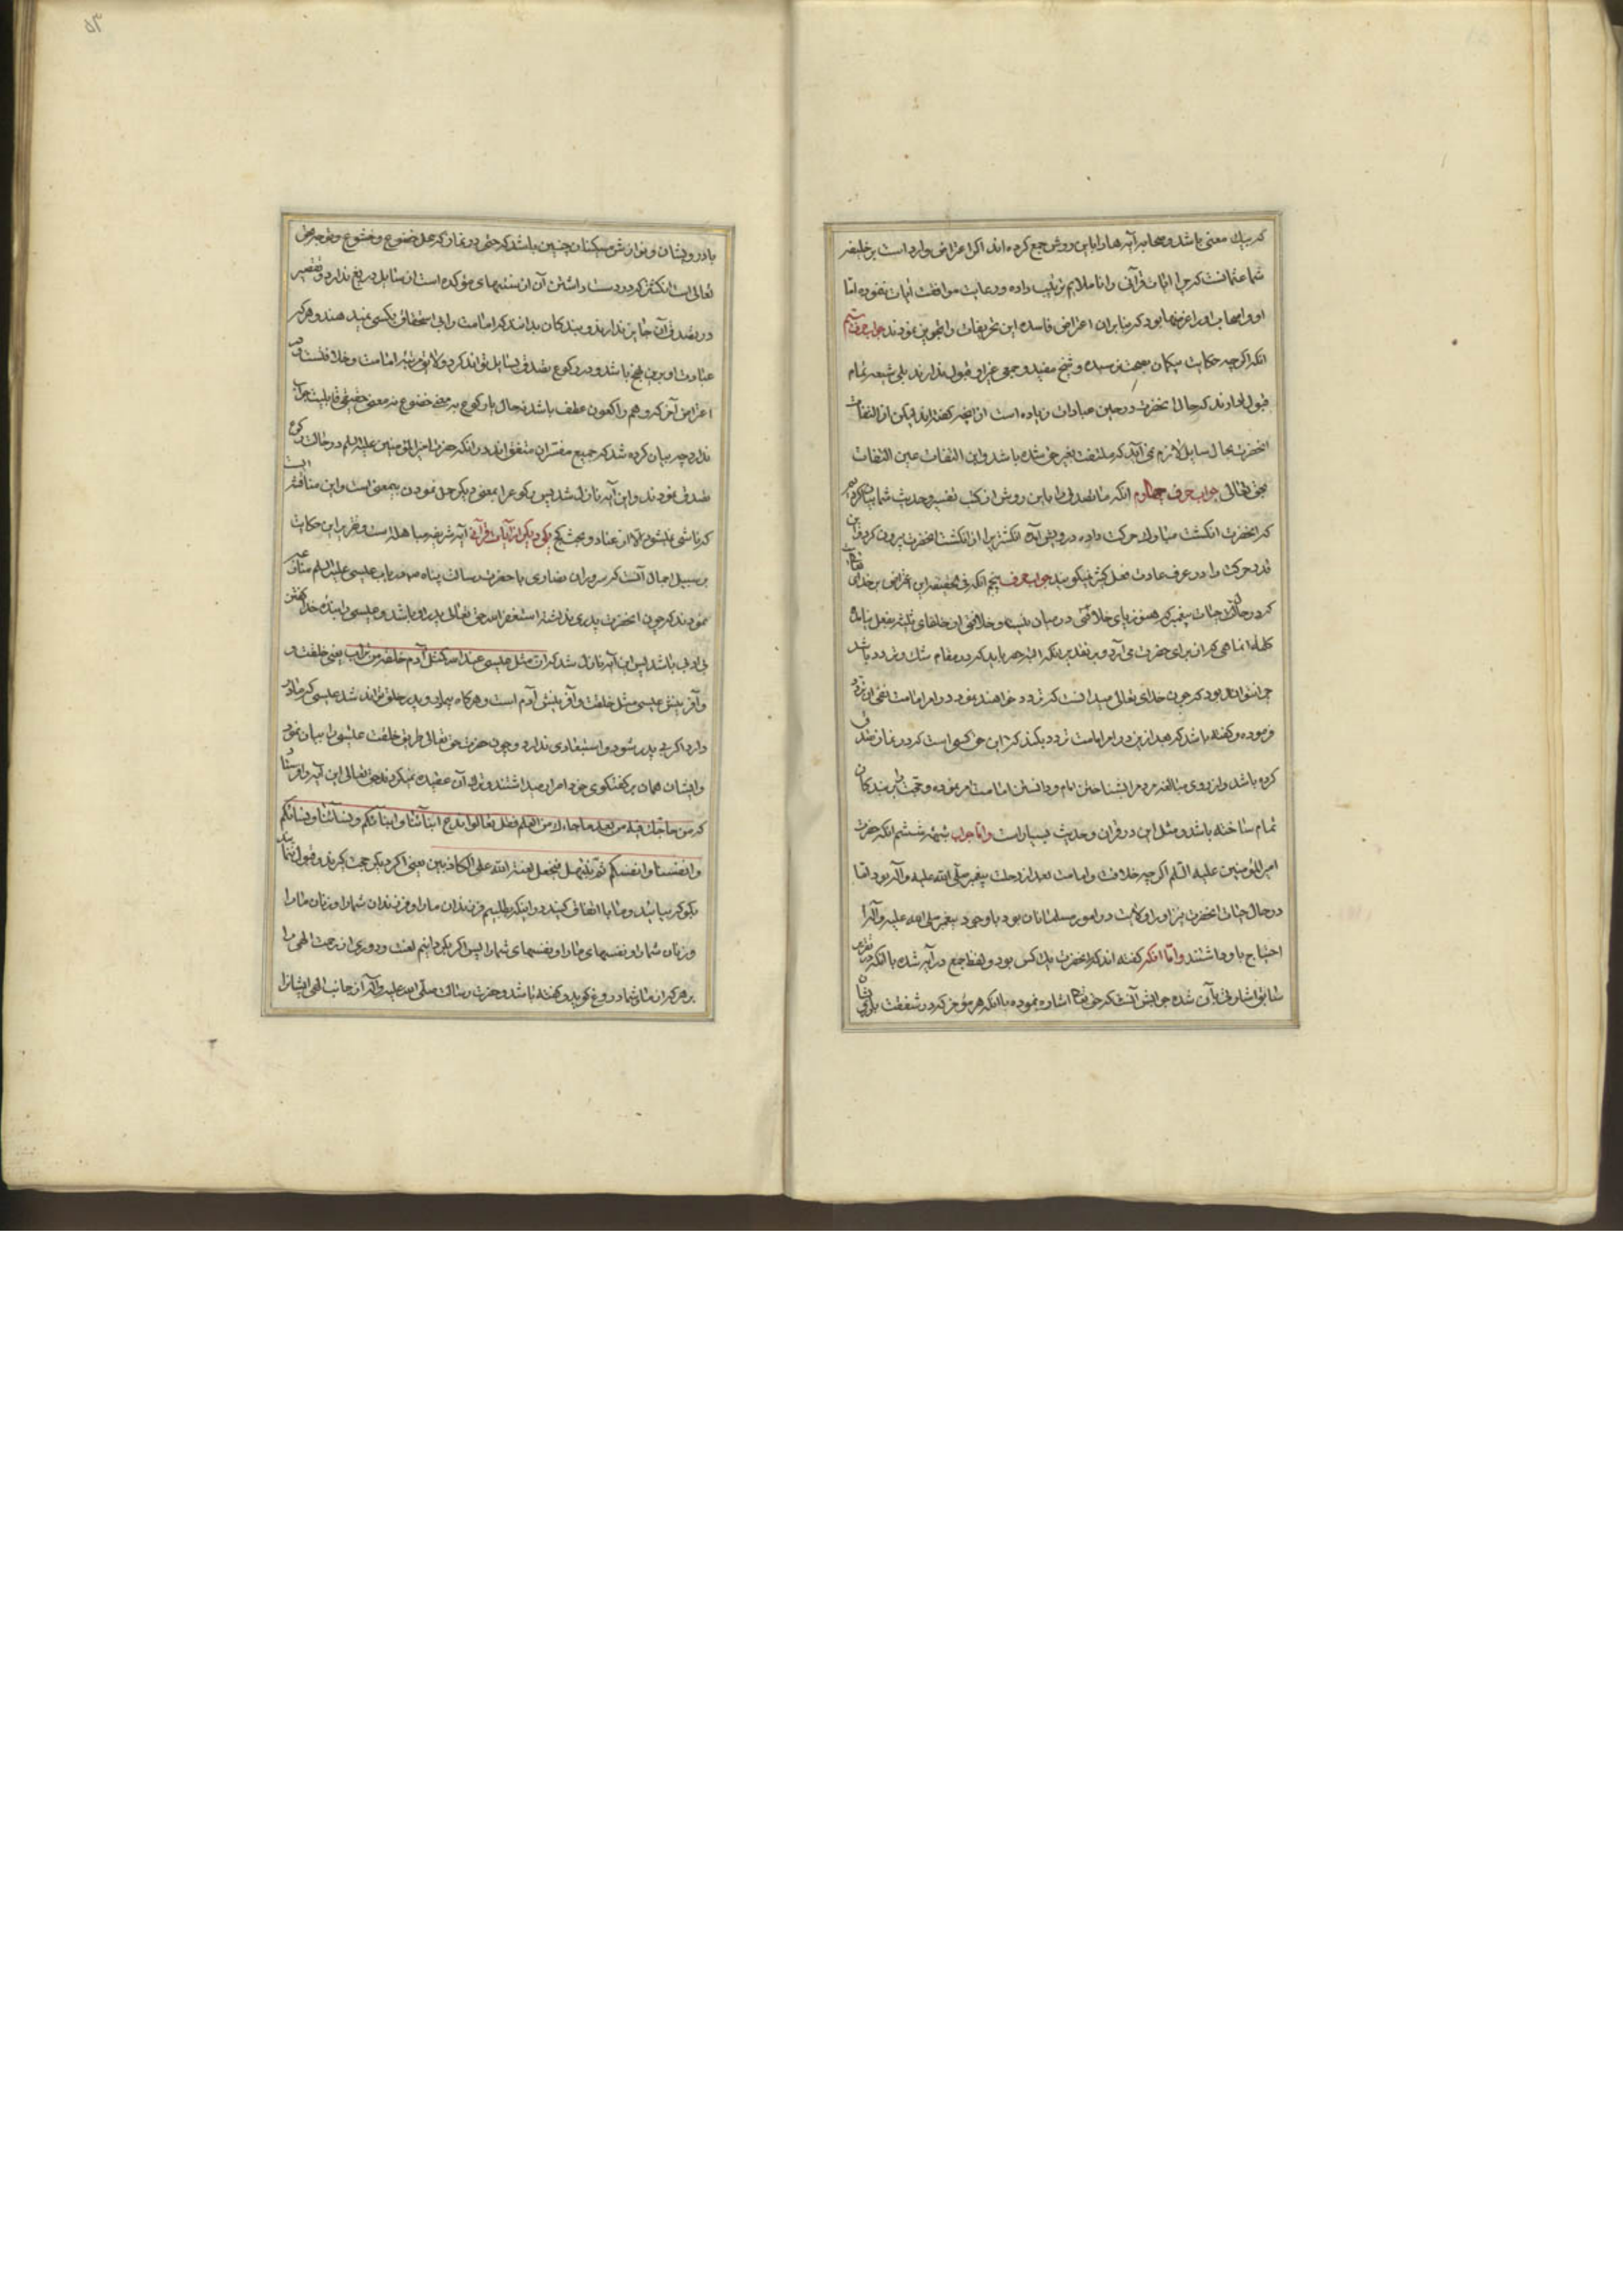 که بیك معنی باشد و صحابه آیه ها را باین روش جمع کرده اند اکر اعتراض وارد است بر خلیفه
شما عثمانست که چرا اثبات قرآنی را نا ملایم ترتیب داده و رعایت موافقت ابیات ننموده اما
او و اصحاب او را غرضها بود که بنا بران اعتراض فاسده این تحریفات را تجویز نمودند جواب حرف سیم
انکه اکرچه حکایت پیکان سید و شیخ مفید و جمعی غزالی قبول ندارند بلی شیعه تمام
قبول دارند که حال انحضرت در حین عبادات زیاده است از انچه کفته اند لیکن از التفات
انحضرت بحال سایل لازم نمی آید که ملتفت بغیر حق شده باشد و این التفات عین التفات
بحق تعالی جواب حرف چهارم انکه ما تصدق را باین روش از کتب تفسیر و حدیث شما بیان کرده‌یم
که انحضرت انکشت مبارك حرکت داده درویش آمده انکشتر را از انکشت انحضرت بیرون کرد و این
قدر حرکت را در عرف عادت فعل کثیر نمیکویند جواب حرف پنجم انکه فی الحقیقه این اعتراض بر خدای تعالی
که در حالت حیات پیغمبر که هنوز پای خلافتی در میان نیست و خلافتی از خلفای ثلثه بفعل نیامده
کلمه انما هی که از برای حضرت می آرد و بر تقدیر انکه البته حصر باید که در مقام شك و تردد باشد
جوابش ان بود که چون خدای تعالی میدانست که تردد خواهند نمود در امر امامت نفی ان تردد
فرموده و کفته باشد که بعد ازین در امر امامت تردد یکنید که این حق کسی است که در نماز تصدق
کرده باشد و از روی مبالغه مردم را بشناختن امام و دانستن امامت امر نموده و حجت بر بندکان
تمام ساخته باشد و مثل این در قرآن و حدیث بسیار است و اما جواب شبهه ششم انکه حضرت
امیر المؤمنین علیه السلم اکرچه خلافت و امامت بعد از رحلت پیغمبر صلی الله علیه و آله بود اما
در حال حیات انحضرت نیز او را ولایت در امور مسلمانان بود با وجود پیغمبر صلی الله علیه و آله را
احتیاج باو داشتند و اما انکه کفته اند که انحضرت یك کس بود و لفظ جمع در آیه شده با انکه در تقریر
سابق اشارتی بآن شده جوابش آنست که حق تعالی اشاره نموده با انکه هر مؤمن که در شفقت بارکان
با درویشان و نوازش مسکینان چنین باشد که حتی در نماز که محل خضوع و خشوع و توجه بحق
تعالی است انکشتری که در دست داشتن آن از سنتهای مؤکده است از سایل دریغ ندارد و تقصیر
در تصدق آن جایز ندارند و بندکان بدانند که امامت را بی استحقاق بکسی نمیدهند و هرکه
عبادت او برین نهج باشد و در رکوع تصدق بسایل تواند کرد و لایق مرتبه امامت و خلافتست و در
اعتراض آخر که و هم راکعون عطف باشد نه حال یا رکوع به معنی خضوع نه معنی حقیقی قابلیت جواب
ندارد چه بیان کرده شد که جمیع مفسران متفق اند در انکه حضرت امیر المؤمنین علیه السلم در حالت رکوع
تصدق نمودند و این آیه نازل شد پس رکوع را بمعنی دیکر حمل نمودن بیمعنی است و این مناقشه است
که ناشی نمیشود الا از عناد و بحث کج یکی دیکر از آیات قرآنی آیه شریفه مباهله است و تقریر این حکایت
بر سبیل اجمال آنست که سروران نصاری با حضرت رسالت پناه صم در باب عیسی علیه السلم مناظره
نمودند که چون انحضرت پدری نداشته استغفر الله حق تعالی پدر او باشد و عیسی را بنده خدا کفتن
بی ادبی باشد پس این آیه نازل شد که ان مثل عیسی عند الله کمثل آدم خلقه من تراب یعنی خلقت
و آفرینش عیسی مثل خلقت و آفرینش آدم است و هرکاه بیمادر و پدر خلق تواند شد عیسی که مادر
دارد اکر بی پدر شود استبعادی ندارد و چون حضرت حق تعالی طریق خلقت عیسی را بیان نمود
و ایشان همان بر کفتکوی خود اصرار میداشتند و ترك آن عقیده نمیکردند حق تعالی این آیه را فرستاد
که من حاجك فیه من بعد ما جاءك من العلم فقل تعالوا ندع ابناءنا و ابناءکم و نساءنا و نساءکم
و انفسنا و انفسکم ثم نبتهل فنجعل لعنة الله علی الکاذبین یعنی اکر دیکر حجت کیرند و قبول ننمایند
بکو که بیایید و با ما اتفاق کنید در اینکه بطلبیم فرزندان ما را و فرزندان شما را و زنان ما را
و زنان شما را و نفسهای ما را و نفسهای شما را پس اکر بکردانیم لعنت و دوری از رحمت الهی را
بر هرکه از ما و شما دروغ کوید و کفته باشد و حضرت رسالت صلی الله علیه و آله از جانب الهی ایشانرا